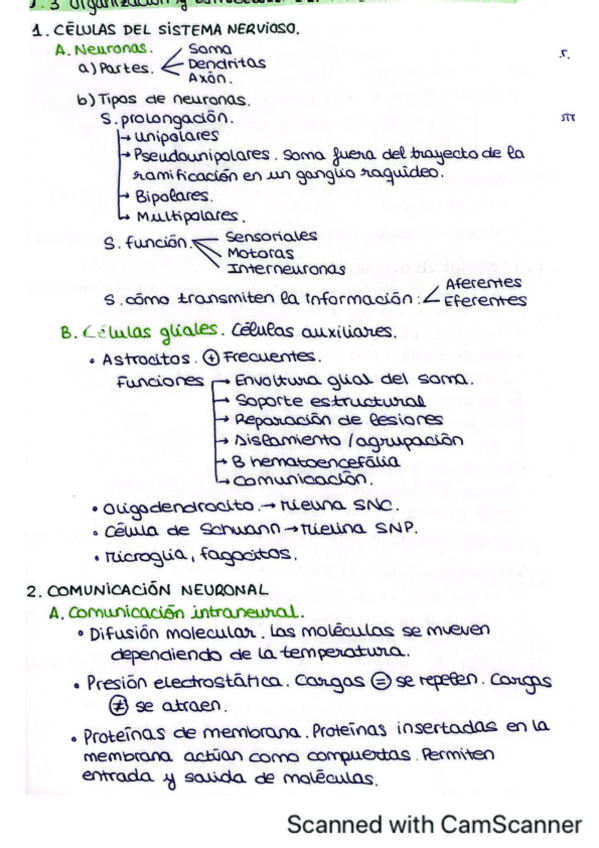 1. CÉLULAS DEL SISTEMA NERVIOSO.
A. Neuronas.
a) Partes. Soma
Dendritas
Axón.
b) Tipos de neuronas.
S. prolongación.
→ Unipolares
→ Pseudounipolares. Soma fuera del trayecto de la
ramificación en un ganglio raquídeo.
→ Bipolares.
→ Multipolares.
S. función. Sensoriales
Motoras
Interneuronas
S. cómo transmiten la información: Aferentes
Eferentes
B. Células gliales. Células auxiliares.
• Astrocitos. ⊕ Frecuentes.
Funciones → Envoltura glial del soma.
→ Soporte estructural
→ Reparación de lesiones
→ Aislamiento / agrupación
→ B hematoencefália
→ Comunicación.
• Oligodendrocito. → Mielina SNC.
• Célula de Schwann → Mielina SNP.
• Microglia, fagocitos.
2. COMUNICACIÓN NEURONAL
A. Comunicación intraneural.
• Difusión molecular. Las moléculas se mueven
dependiendo de la temperatura.
• Presión electrostática. Cargas = se repelen. Cargas
≠ se atraen.
• Proteínas de membrana. Proteínas insertadas en la
membrana actúan como compuertas. Permiten
entrada y salida de moléculas.
Scanned with CamScanner